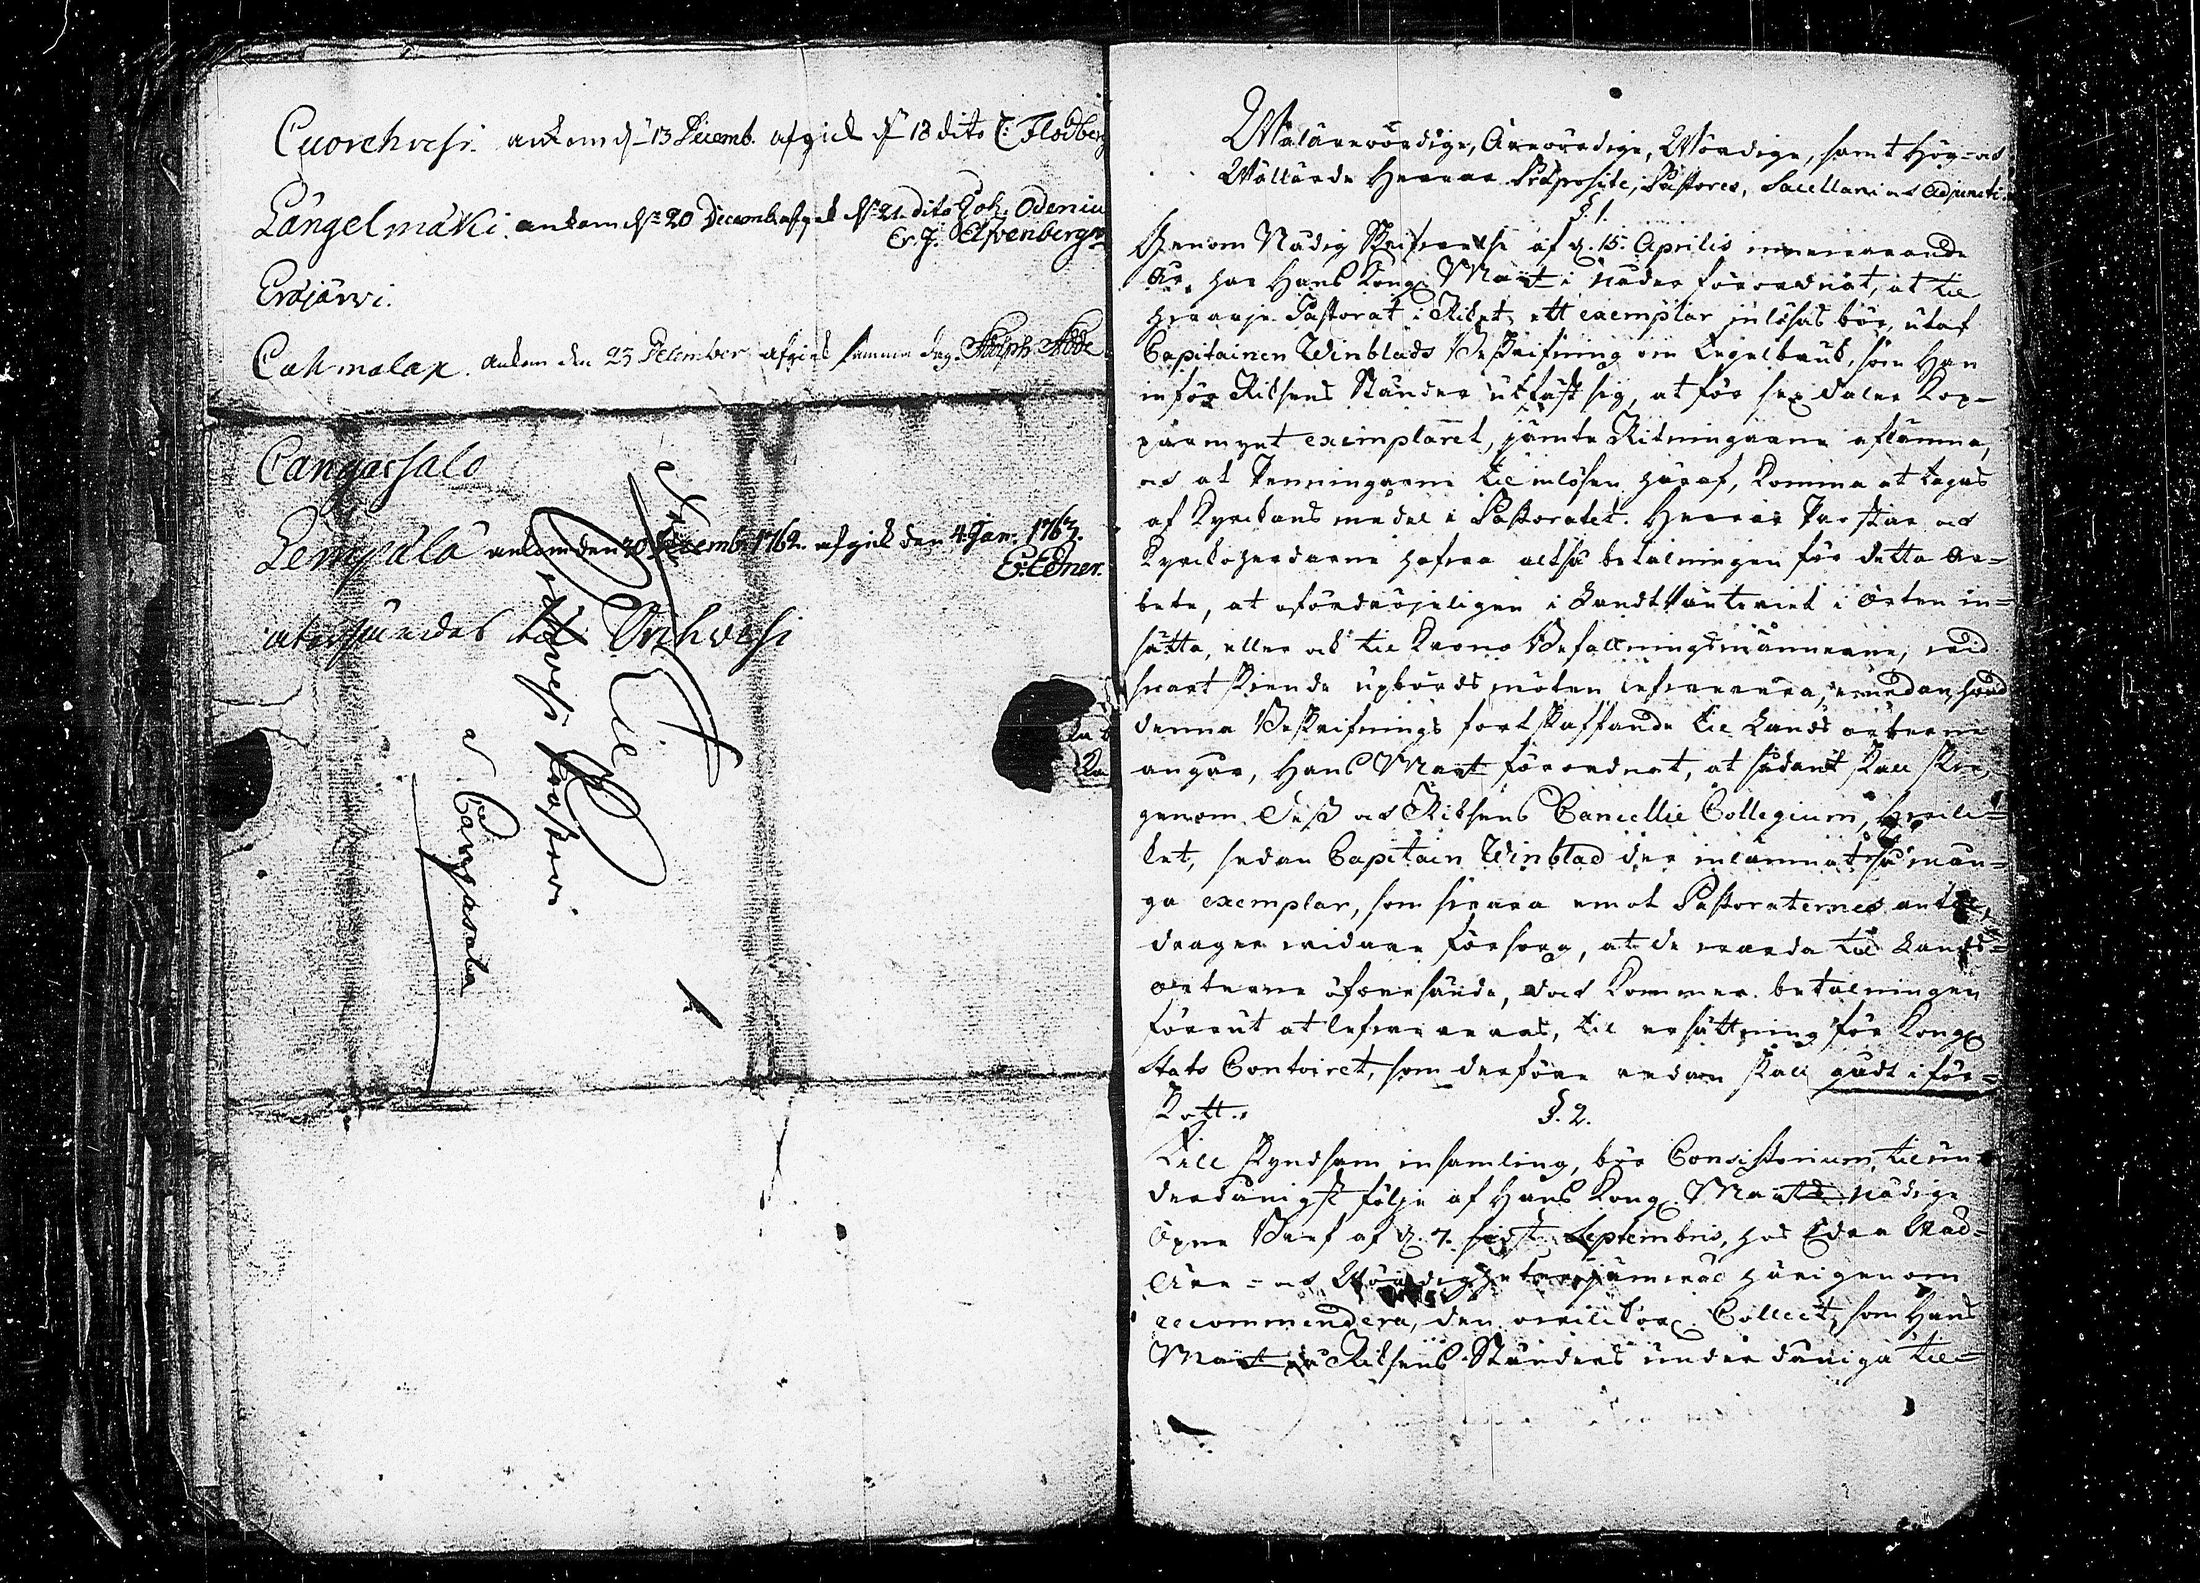 Cuorehvesi ankom d. 13 Decemb. afgick d. 18 dito C: Flodberg
Längelmäki. ankom d. 20 Decemb. afgick d. 21. dito Joh. Odeniu
Er. J. Elfvenberg
Eräjärvi.
Cuhmalax. ankom den 23 December afgick samma dag.
Cangasala
Lempälä ankom den 30 Decemb. 1762. afgick den 4. Jan. 1763.
Er. Edner.
återsändes til Orihvesi
Til
Orihvesi
a Cangasala
Wälärewördige, Ärewördige, Wördige, samt Hög- och
Wällärde Herrar Præposite, Pastores, Sacellani och Adjuncti.
§. 1.
Genom Nådig Skrifvelse af d. 15. Aprilis innevarande
år, har Hans Kong. Maj:t i nåder förordnat, at til
hvarje Pastorat i Riket, ett exemplar inlösas bör, utaf
Capitainen Winblads Beskrifning om Tegelbruk, som Han
inför Riksens Ständer utfäst sig, at för sex daler Kop-
parmynt exemplaret, jämte Ritningarne aflämna,
och at Penningarne til inlösen häraf, komma at tagas
af Kyrckans medel i Pastoratet. Herrar Prostar och
Kyrckoherdarne hafva altså betalningen för detta Ar-
bete, at ofördröjeligen i Landt Ränteriet i Orten in-
sätta, eller ock til Krono Befallningsmännerne, vid
snart skeende upbörds möten lefverera, medan hvad
denna Beskrifnings fortskaffande til Lands orterne
angår, Hans Maj:t förordnat, at sådant skall ske,
genom Dess och Riksens Cancellie Collegium, hvil-
ket, sedan Capitain Winblad der inlämnat så mån-
ga exemplar, som svara emot Pastoraternes antal,
drager vidare försorg, at de varda til Lands-
orterne öfversände, och kommer betalningen
förut at lefvereras, til ersättning för Kong.
Stats Contoiret, som derföre redan skall gådt i för-
skott.
§. 2.
Till skyndsam insamling, bör Consistorium, til un-
derdånigst följe af Hans Kong. Maj:ts nådige
Öpne Bref af d. 7. sidst. Septembris, hos Eder Wäl-
Äre- och Wördigheter härigenom
recommendera, den Collect, som Hans
Maj:t på Riksens Ständers underdåniga til-